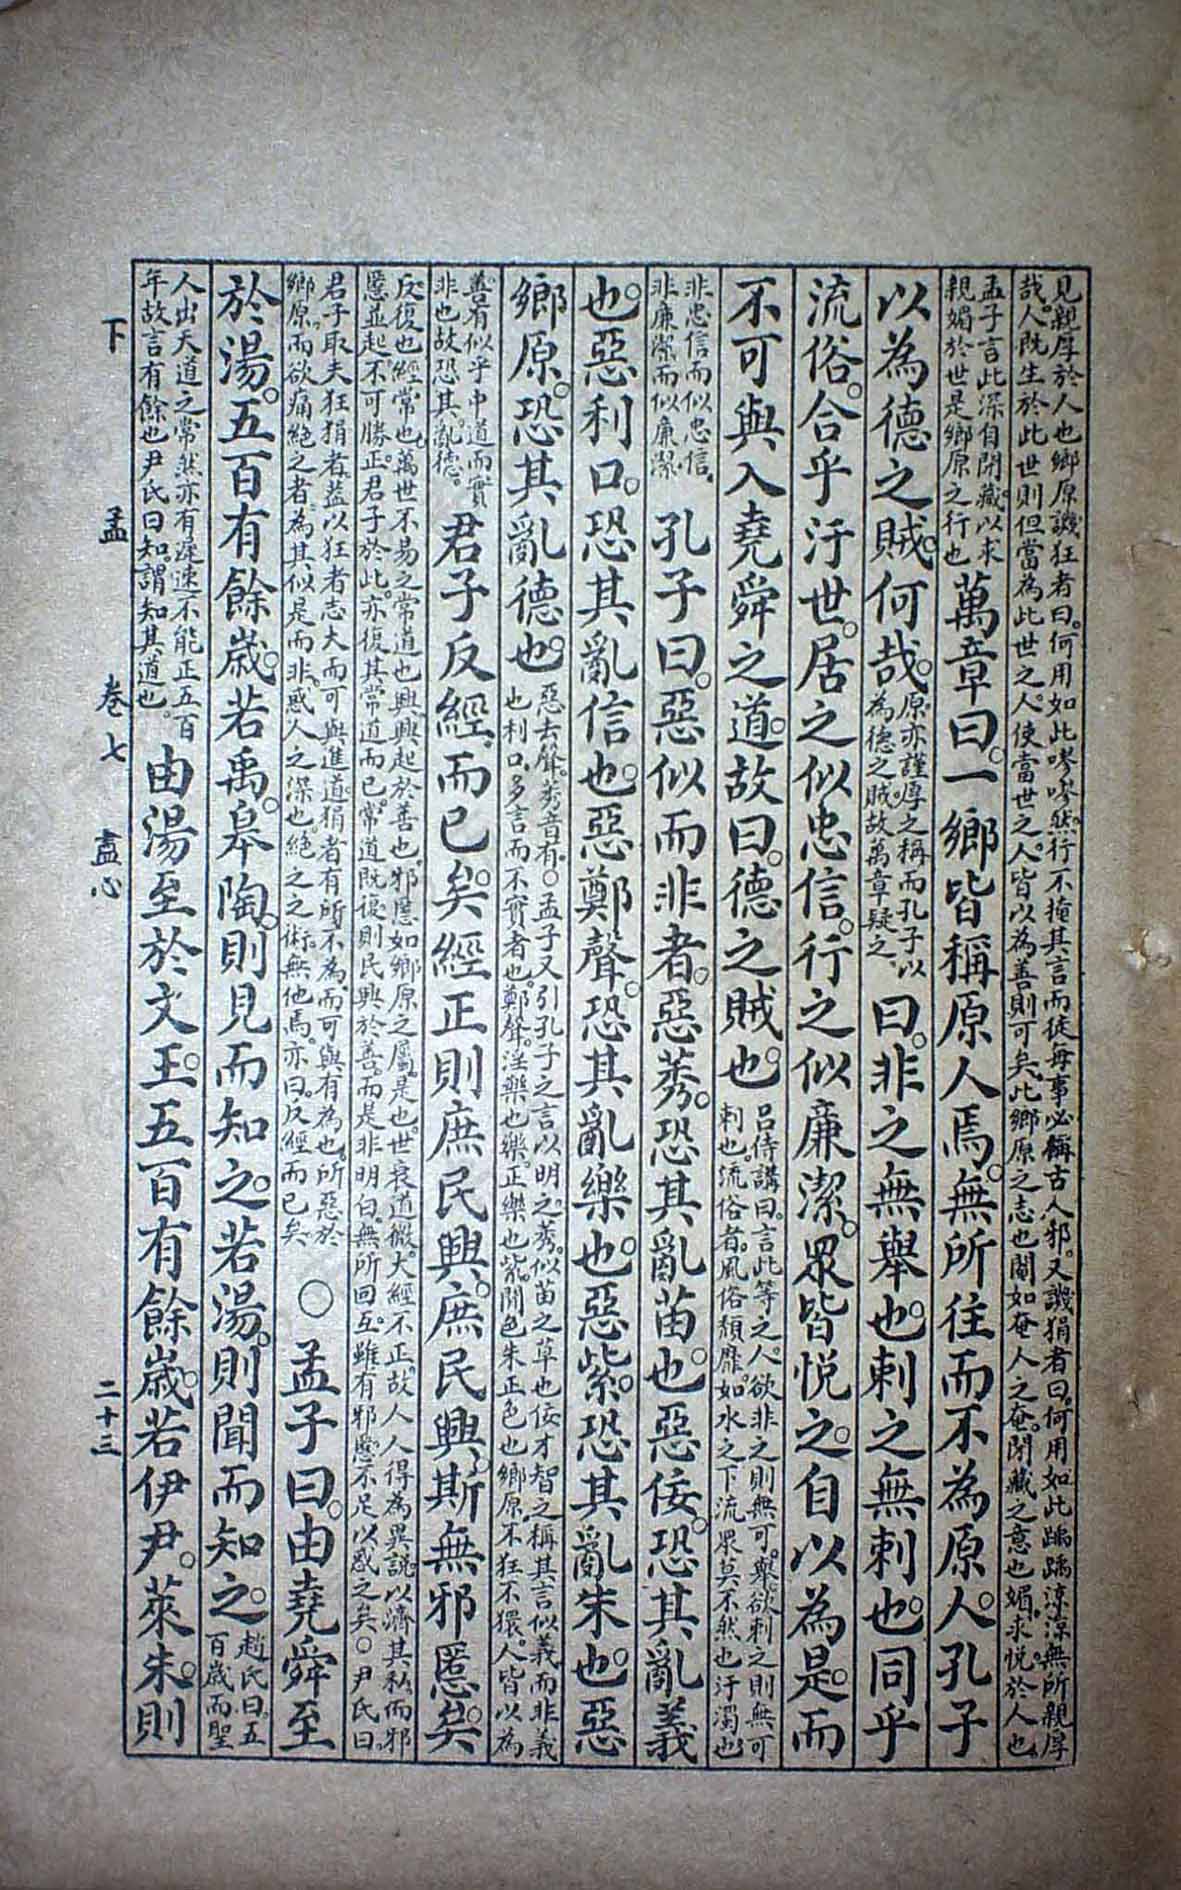 見親厚於人也。鄉原譏狂者曰。何用如此嘐嘐然。行不掩其言。而徒每事必稱古人邪。又譏狷者曰。何用如此踽踽涼涼。無所親厚
哉。人既生於此世。則但當為此世之人。使當世之人。皆以為善則可矣。此鄉原之志也。閹如奄人之奄。閉藏之意也。媚。求悅於人也。
孟子言此深自閉藏。以求
親媚於世。是鄉原之行也
萬章曰。一鄉皆稱原人焉。無所往而不為原人。孔子
以為德之賊。何哉。
原亦謹厚之稱。而孔子以
為德之賊。故萬章疑之。
曰。非之無舉也。刺之無刺也。同乎
流俗。合乎汙世。居之似忠信。行之似廉潔。眾皆悅之。自以為是。而
不可與入堯舜之道。故曰。德之賊也。
呂侍講曰。言此等之人。欲非之則無可舉。欲刺之則無可
刺也。流俗者。風俗頹靡。如水之下流。眾莫不然也。汙濁也。
非忠信而似忠信。
非廉潔而似廉潔
孔子曰。惡似而非者。惡莠。恐其亂苗也。惡佞。恐其亂義
也。惡利口。恐其亂信也。惡鄭聲。恐其亂樂也。惡紫。恐其亂朱也。惡
鄉原。恐其亂德也。
惡去聲。莠音有。○孟子又引孔子之言以明之。莠。似苗之草也。佞才智之稱。其言似義而非義
也。利口。多言而不實者也。鄭聲。淫樂也。樂。正樂也。紫。間色。朱正色也。鄉原。不狂不獧。人皆以為
善。有似乎中道而實
非也。故恐其亂德。
君子反經而已矣。經正則庶民興。庶民興。斯無邪慝矣。
反。復也。經常也。萬世不易之常道也。興。興起於善也。邪慝如鄉原之屬。是也。世衰道微。大經不正。故人人得為異說。以濟其私。而邪
慝並起。不可勝正。君子於此。亦復其常道而已。常道既復。則民興於善。而是非明白。無所回互。雖有邪慝。不足以惑之矣。○尹氏曰
君子取夫狂狷者。葢以狂者志大而可與進道。狷者有所不為。而可與有為也。所惡於
鄉原。而欲痛絕之者。為其似是而非。惑人之深也。絕之之術。無他焉。亦曰。反經而已矣
○孟子曰。由堯舜至
於湯。五百有餘歲。若禹。皋陶。則見而知之。若湯。則聞而知之。
趙氏曰。五
百歲而聖
人出。天道之常。然亦有遲速。不能正五百
年。故言有餘也。尹氏曰。知謂知其道也。
由湯至於文王。五百有餘歲。若伊尹。萊朱。則
下 孟 卷七 盡心 二十三